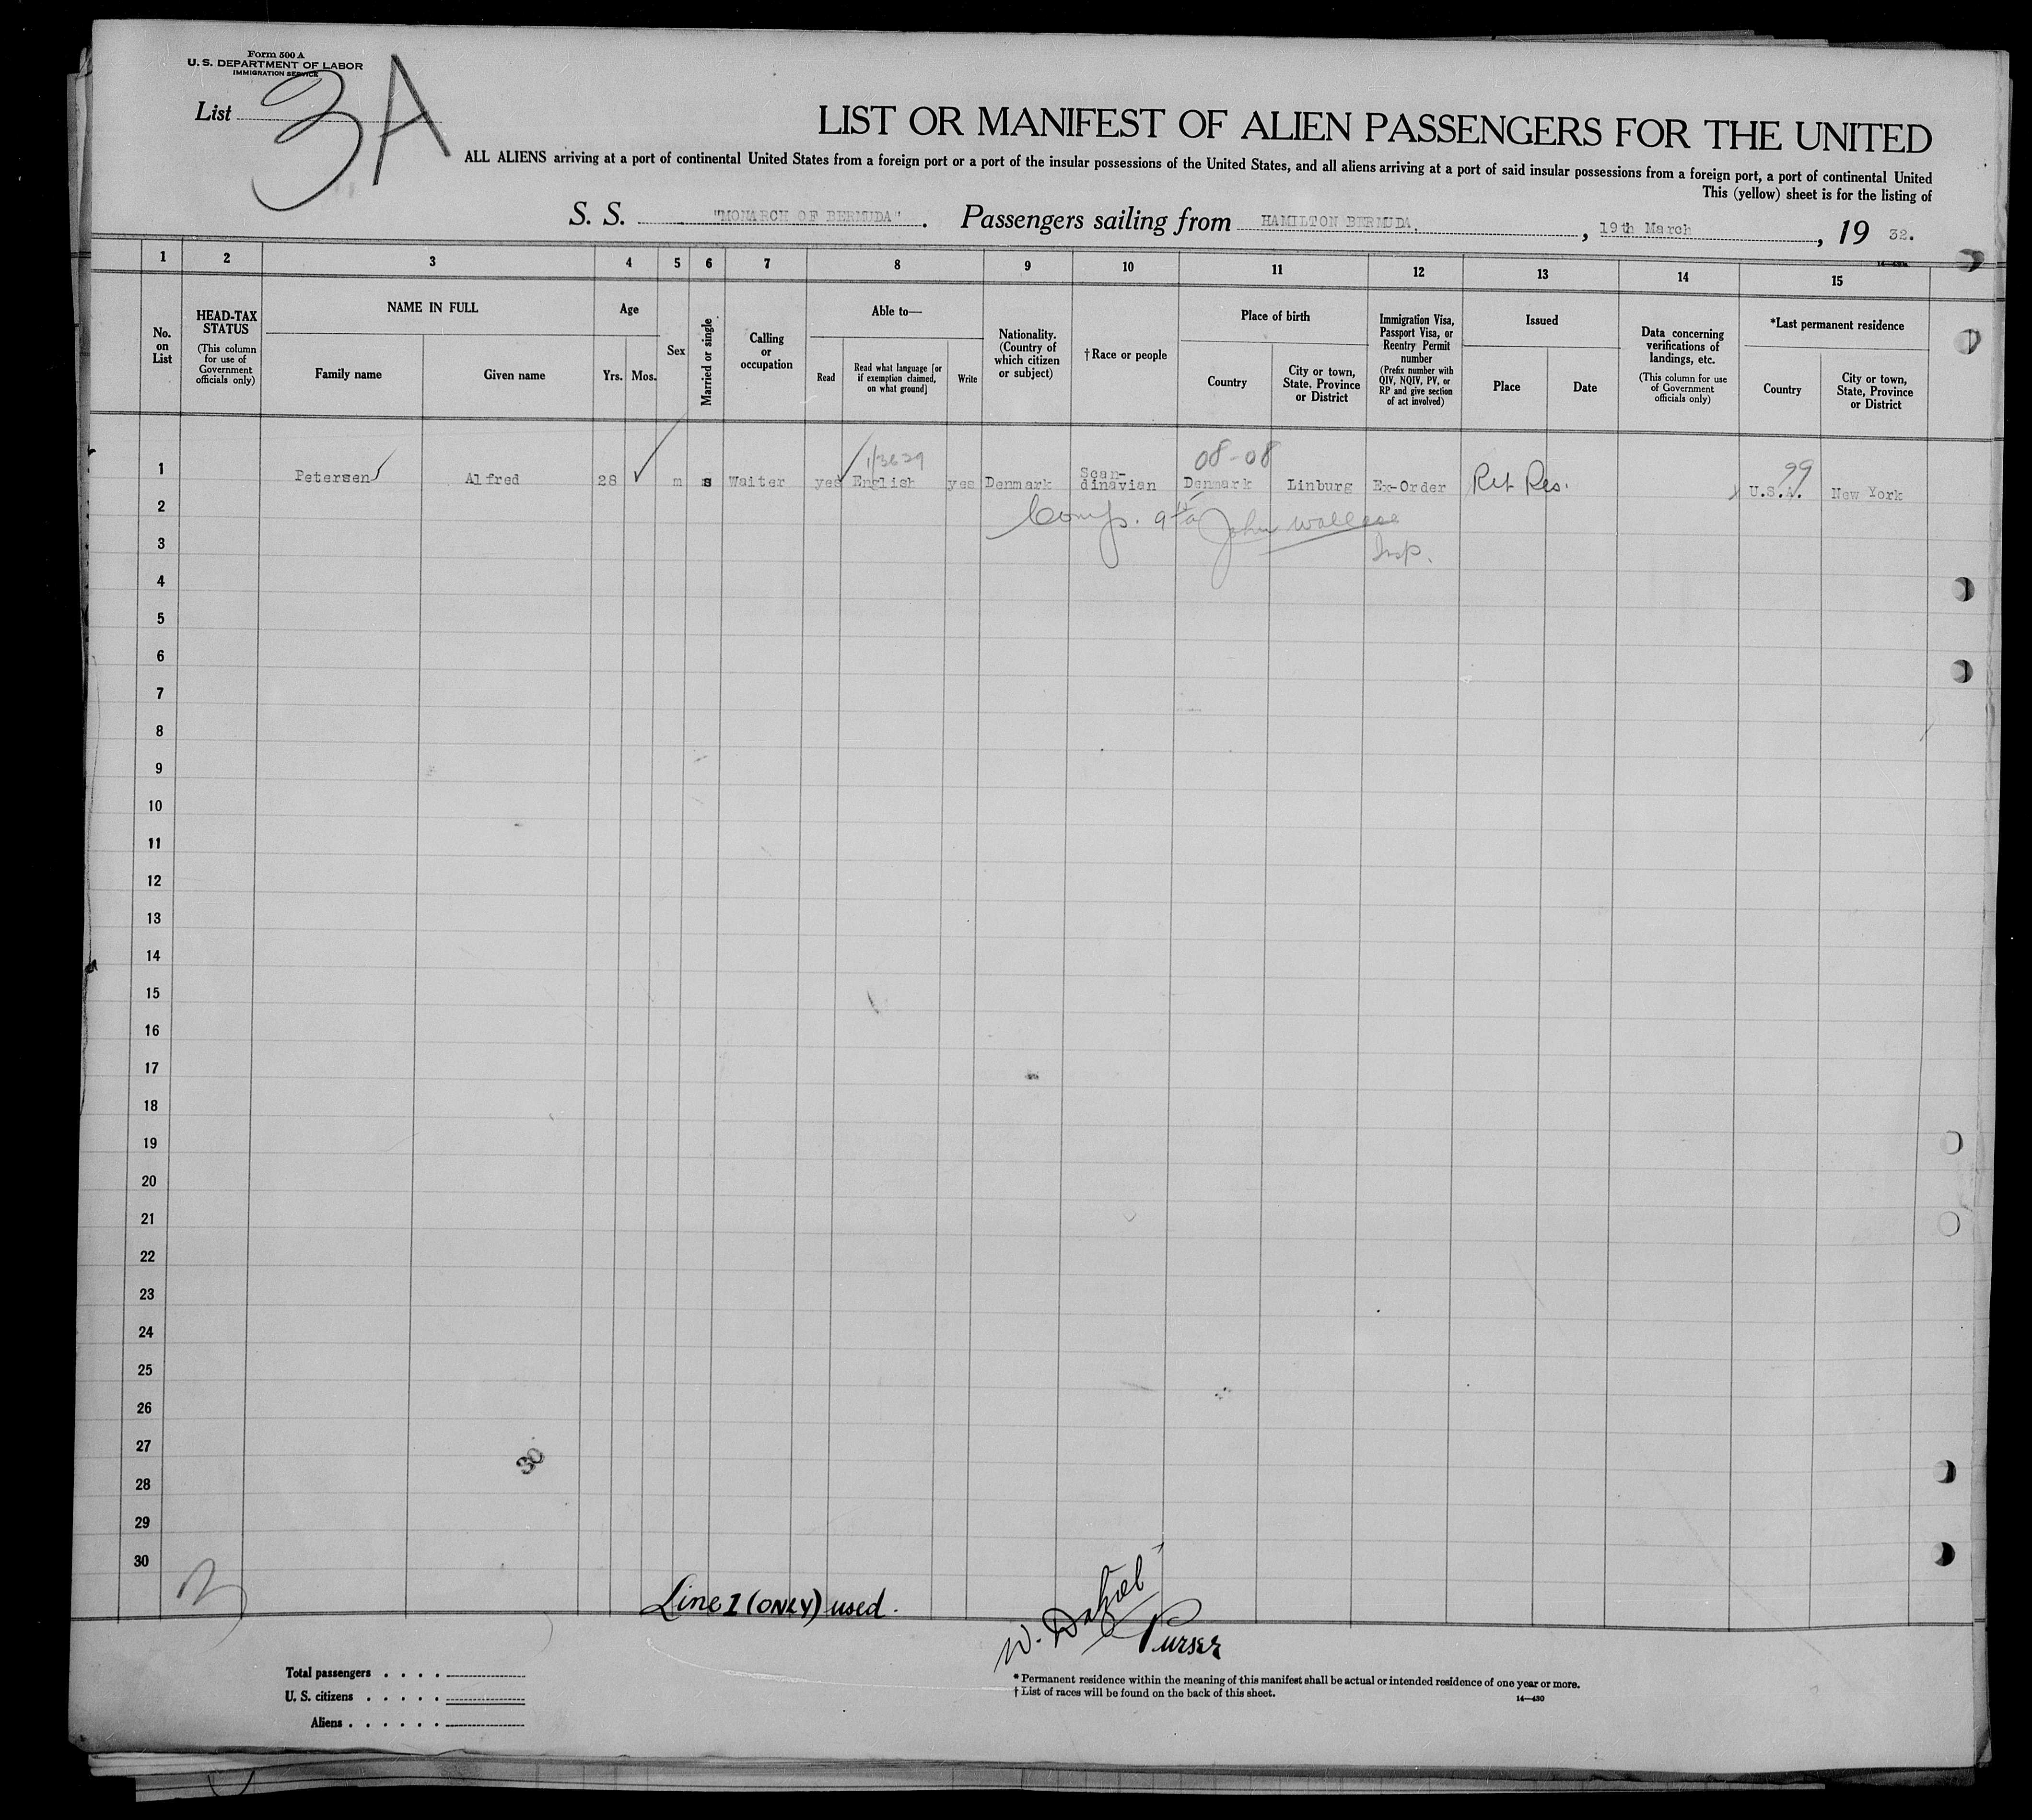 Form 500 A
U. S. DEPARTMENT OF LABOR
IMMIGRATION SERVICE
List 3A
LIST OR MANIFEST OF ALIEN PASSENGERS FOR THE UNITED
ALL ALIENS arriving at a port of continental United States from a foreign port or a port of the insular possessions of the United States, and all aliens arriving at a port of said insular possessions from a foreign port, a port of continental United
This (yellow) sheet is for the listing of
S. S. "MONARCH OF BERMUDA". Passengers sailing from HAMILTON BERMUDA, , 19th March , 19 32.
1 2 3 4 5 6 7 8 9 10 11 12 13 14 15
No. on List
HEAD-TAX STATUS
(This column for use of Government officials only)
NAME IN FULL
Family name
Given name
Age
Yrs.
Mos.
Sex
Married or single
Calling or occupation
Able to—
Read
Read what language [or if exemption claimed, on what ground]
Write
Nationality. (Country of which citizen or subject)
†Race or people
Place of birth
Country
City or town, State, Province or District
Immigration Visa, Passport Visa, or Reentry Permit number
(Prefix number with QIV, NQIV, PV, or RP and give section of act involved)
Issued
Place
Date
Data concerning verifications of landings, etc.
(This column for use of Government officials only)
*Last permanent residence
Country
City or town, State, Province or District
08-08
99
1 Petersen Alfred 28 m s Waiter yes English yes Denmark Scan-dinavian Denmark Linburg Ex-Order Ret Res. U.S.A. New York
2 Comp. John Wallace
3 Insp.
4
5
6
7
8
9
10
11
12
13
14
15
16
17
18
19
20
21
22
23
24
25
26
27
30
28
29
30
Line 1 (ONLY) used.
Purser
Total passengers . . . .
U. S. citizens . . . . .
Aliens . . . . . .
* Permanent residence within the meaning of this manifest shall be actual or intended residence of one year or more.
† List of races will be found on the back of this sheet.
14—430